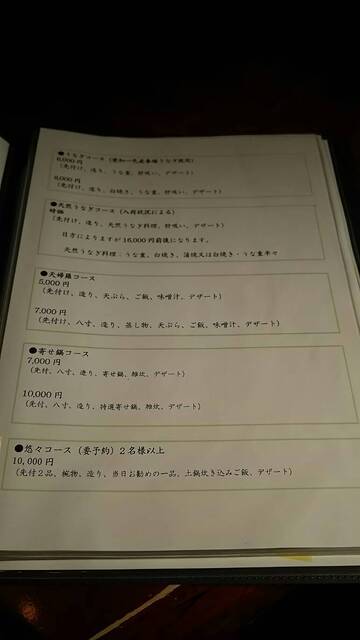 ●うなぎコース（愛知一色産養殖うなぎ使用）
6,000円
（先付け、造り、うな重、肝吸い、デザート）
8,000円
（先付け、造り、白焼き、うな重、肝吸い、デザート）
●天然うなぎコース（入荷状況による）
時価
（先付け、造り、天然うなぎ料理、肝吸い、デザート）
目方によりますが16,000円前後になります。
天然うなぎ料理：うな重、白焼き、蒲焼又は白焼き・うな重半々
●天婦羅コース
5,000円
（先付け、造り、天ぷら、ご飯、味噌汁、デザート）
7,000円
（先付け、八寸、造り、蒸し物、天ぷら、ご飯、味噌汁、デザート）
●寄せ鍋コース
7,000円
（先付、八寸、造り、寄せ鍋、雑炊、デザート）
10,000円
（先付、八寸、造り、特選寄せ鍋、雑炊、デザート）
●悠々コース（要予約）２名様以上
10,000円
（先付２品、椀物、造り、当日お勧めの一品、土鍋炊き込みご飯、デザート）